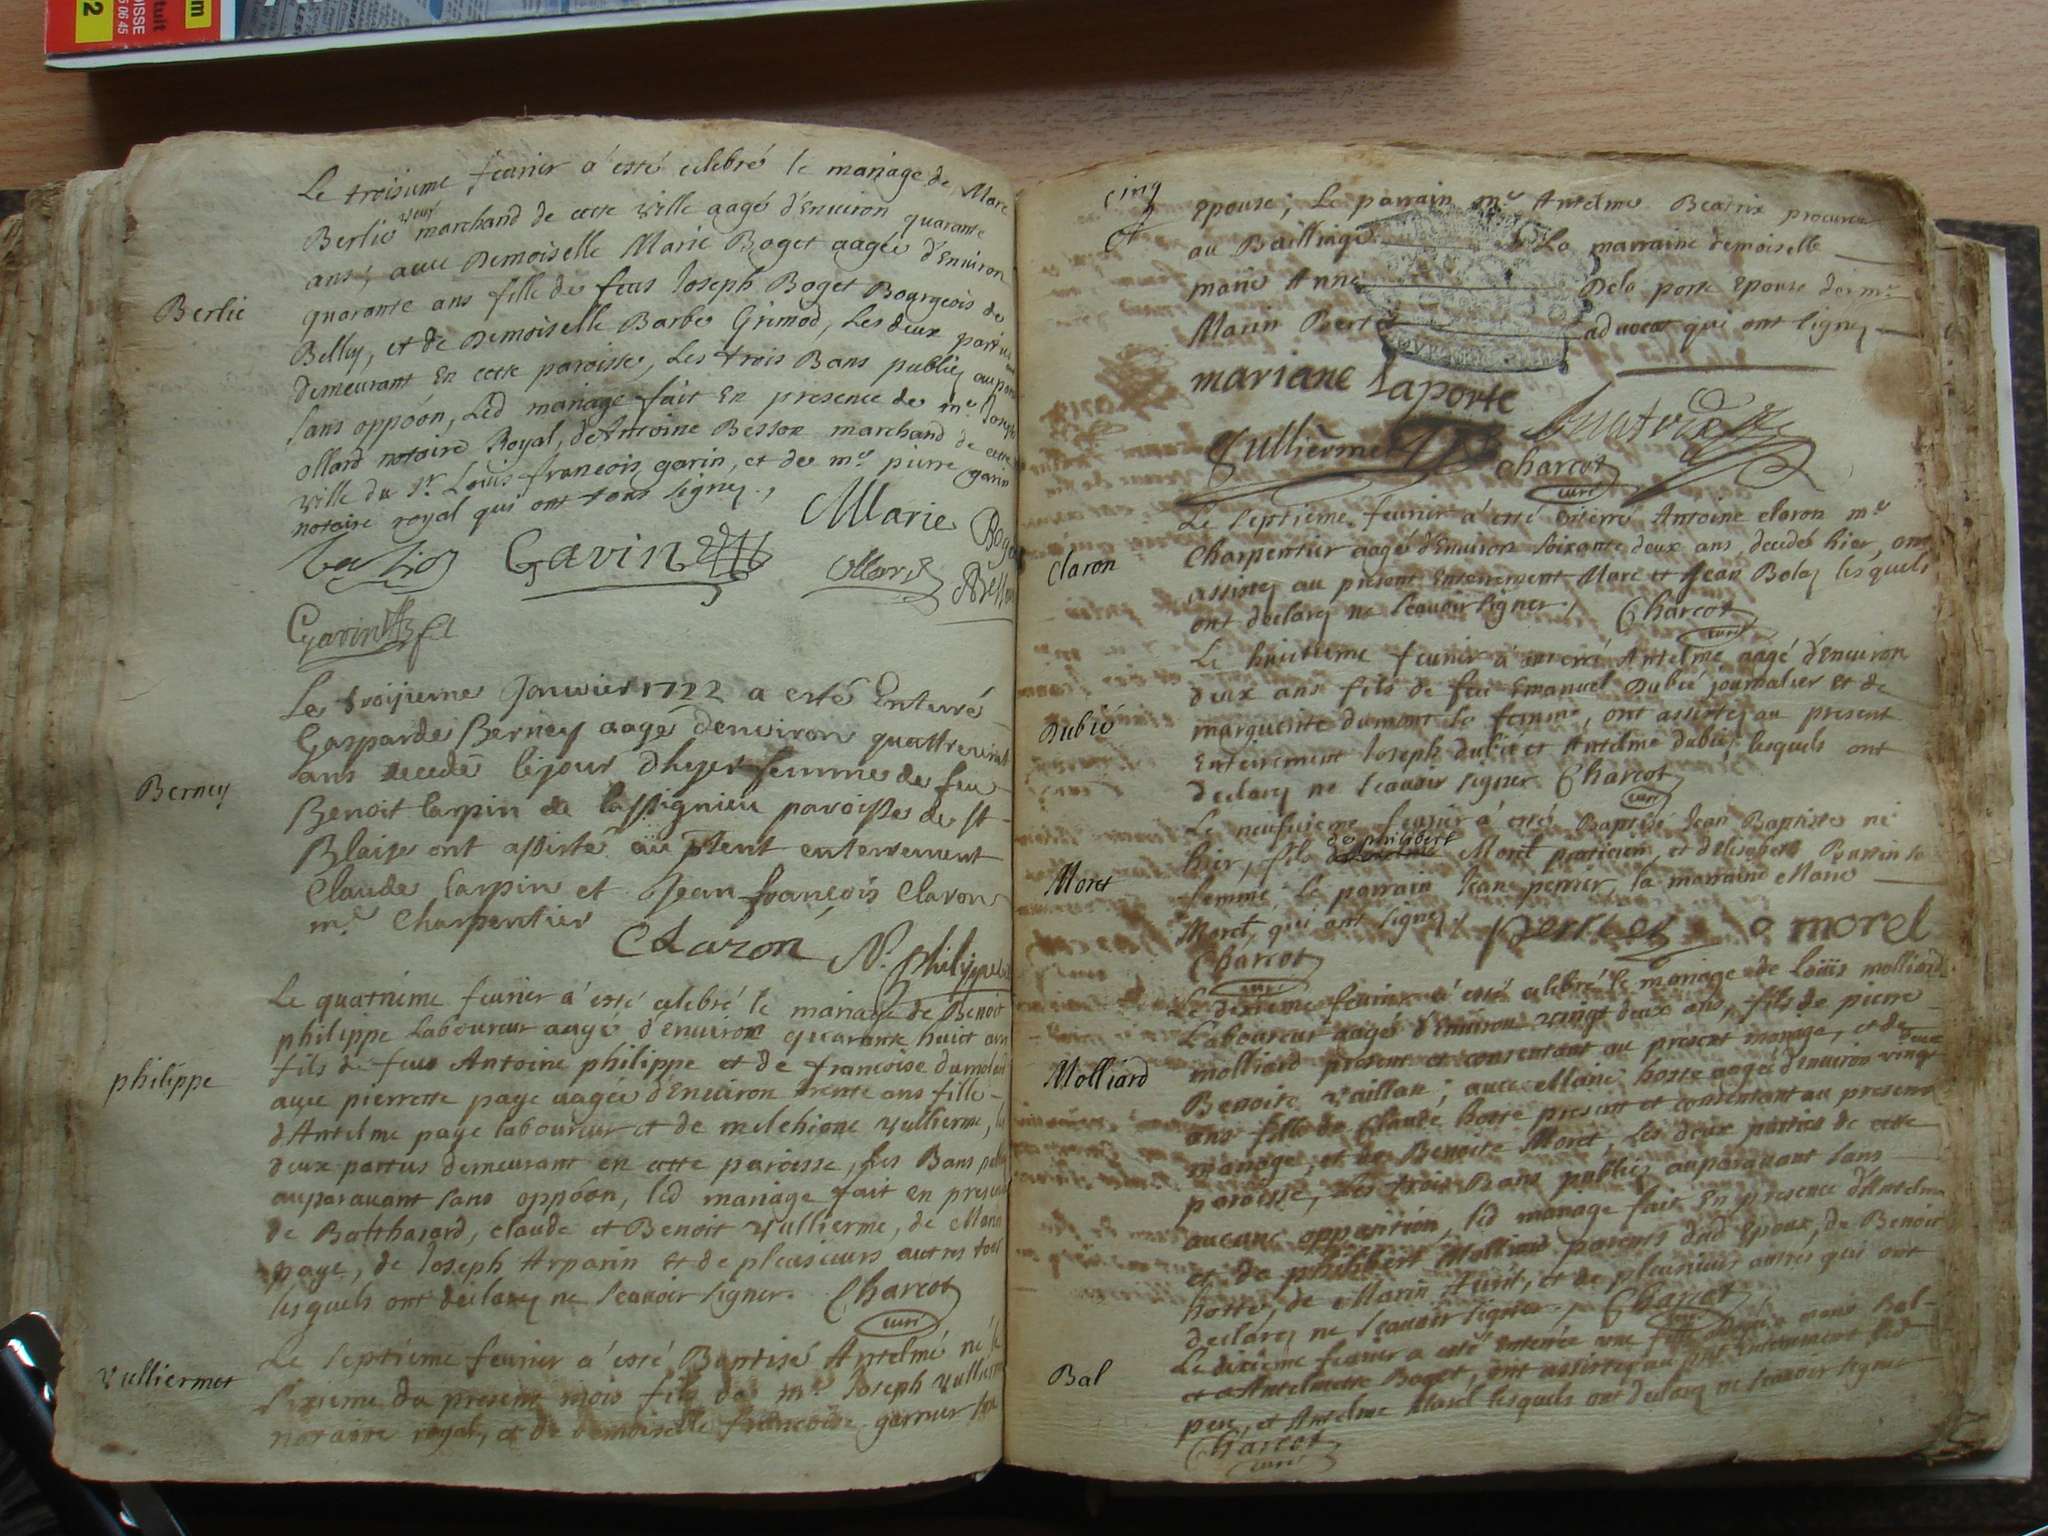 Le troisieme feurier a esté celebré le mariage de Marc
Berlie veuf marchand de cette ville aagé d'Enuiron quarante
ans, auec Demoiselle Marie Boget aagée d'Enuiron
quarante ans fille de feus Joseph Boget Bourgeois de
Belley, et de Demoiselle Barbe Grimod, Les deux parties
demeurant En cette paroisse, Les trois Bans publiez
sans oppóon, Led mariage fait En presence de me Joseph
ollard notaire Royal, de Antoine Besson marchand de cette
ville du sr Louis francois garin, et de me pierre garin
notaire royal qui ont tous signez.
Marie Boget
Garin
Ollard
Garin
Berlie
Le troisieme Januier 1722 a esté Enterré
Gasparde Berney aagé denuiron quattrevint
ans decedé le jour d'hyer femme de feu
Benoit Carpin de Cassignieu paroisse de st
Blaise ont assisté au pñent enterrement
Claude Carpin et Jean françois Claron
me Charpentier
Claron N. philippe
Berney
Le quatrieme feurier a esté celebré le mariage de Benoit
philippe Laboureur aagé d'Enuiron quarante huict ans
fils de feus Antoine philippe et de francoise dumolard
auec pierrette paye aagée d'Enuiron trente ans fille
d'Antelme paye laboureur et de melchione vullierme, les
deux parties demeurant en cette paroisse, les Bans
auparauant sans oppóon, led mariage fait en presence
de Balthasard, claude et Benoit vullierme, de Marin
paye, de Joseph Arparin et de plusieurs autres tous
lesquels ont declarez ne scauoir signer. Charcot
curé
philippe
Le septieme feurier a esté Baptisé Antelme né le
sixieme du present mois fils de me Joseph vulliermet
notaire royal, et de demoiselle francoise garnier son
vulliermet
cinq
epouse, Le parrain me Antelme Beatrix procureur
au Bailliage La marraine demoiselle
marie Anne Dela porte Epouse de me
Marin Bert aduocat qui ont signez
mariane Laporte
Vulliermet
charcot
curé
Le septieme feurier a esté Enterré Antoine claron me
Charpentier aagé d'Enuiron soixante deux ans, decedé hier, ont
assistez au present Enterrement Marc et Jean Bolaz lesquels
ont declarez ne scauoir signer. Charcot
curé
Claron
Le huictieme feurier a enterré Antelme aagé d'Enuiron
deux ans fils de feu Emanuel Dubié journalier et de
marguerite dumont sa femme, ont assistez au present
Enterrement Joseph dubié et Antelme dubiez lesquels ont
declarez ne scauoir signer Charcot
curé
Dubié
Le neufuieme feurier a esté Baptisé Jean Baptiste né
hier, fils de philibert Moret praticien, et d'elisabert
femme, le parrain Jean perrier, la marraine Marie
Moret, qui ont signez. perrier morel
Charcot
curé
Moret
Le dixieme feurier a esté celebré le mariage de Loüis molliard
Laboureur aagé d'Enuiron vingt deux ans, fils de pierre
molliard present et consentant au present mariage, et de
Benoite vaillan; auec Marie hoste aagée d'enuiron vingt deux
ans fille de Claude hoste present et consentant au present
mariage, et de Benoite Moret, Les deux parties de cette
paroisse, Les trois Bans publiez auparauant sans
aucune opposition, led mariage fait En presence d'Antelme
et de philibert Molliard parents dud Epoux, de Benoit
hoste, de Marin et de plusieurs autres qui ont
declarez ne scauoir signer. Charcot
curé
Molliard
Le dixieme feurier a esté Enterrée une fille Bal
et d'Antelmette Boget, ont assistez au pñt Enterrement led
pere, et Antelme Morel lesquels ont declarez ne scauoir signer
Charcot
curé
Bal